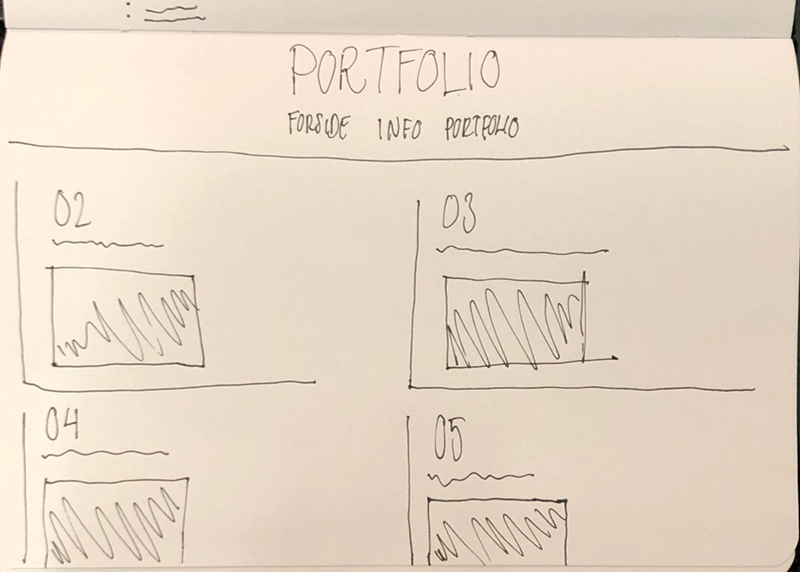 PORTFOLIO
FORSIDE INFO PORTFOLIO
02
03
04
05